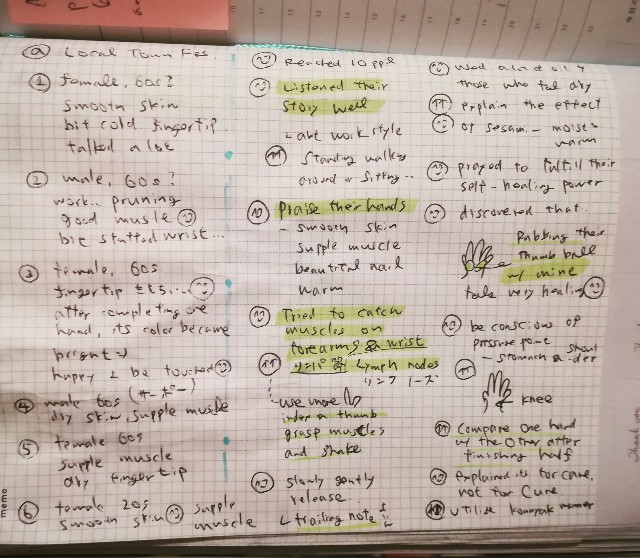 @ Local Town Fes
① female, 60s?
smooth skin
bit cold fingertip
talked a lot
② male, 60s?
work.. pruning
good musle
bit stuffed wrist...
③ female, 60s
fingertip
after completing one
hand, its color became
bright
happy 2 be touched
④ male 60s
dry skin, supple muscle
⑤ female 60s
supple muscle
dry fingertip
⑥ female 20s
smooth skin supple
muscle
Reached 10 ppl
Listened their
story well
work style
standing walking
around or sitting..
Praise their hands
- smooth skin
supple muscle
beautiful nail
warm
Tried to catch
muscles on
forearms & wrist
Lymph nodes
use more
index & thumb
grasp muscles
and shake
slowly gently
release
trailing note
used
those who feel dry
explain the effect
of sesam - moist &
warm
prayed to fulfill their
self-healing power
discovered that
Rubbing their
thumb ball
w/ mine
feels very healing
be conscious of
pressure point
- stomach shoulder
knee
Compare one hand
w/ the other after
finishing half
explained its for care,
not for cure
utilize
memo